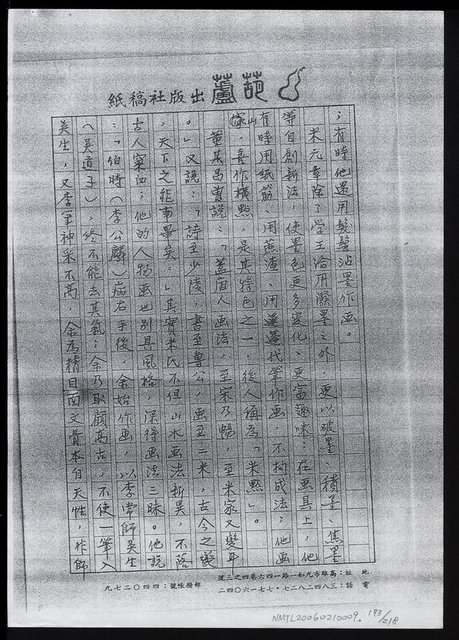 葫蘆出版社稿紙
；有時他還用髮髻沾墨作画。
米元章除了学王洽用潑墨之外，更以破墨、積墨、焦墨
等自創新法，使墨色更多変化，更富趣味；在画具上，他
有時用紙筋、用蔗渣、用蓮蓬代筆作画，不拘成法；他画
山，喜作横點，是其特色之一，後人稱為「米點」。
董其昌曾說：「蓋唐人画法，至宋乃暢，至米家又一変耳
。」又說：「詩至少陵，書至魯公，画至二米，古今之變
，天下之能事畢矣。」其实米氏不但山水画法新異，不落
古人窠臼；他的人物画也別具風格，深得画法三昧。他說
：「伯時（李公麟）病右手後，余始作画，以李常師吳生
（吳道子），終不能去其氣；余乃取顧高古，不使一筆入
吳生，又李筆神采不高，余為精目面文骨木自天性，作師
地址：高雄市九如一路一四六巷四之三號
電話：三八四二八二七・七七一六〇四二
郵撥帳號：四四〇二七九
NMTL20060210009
193/218